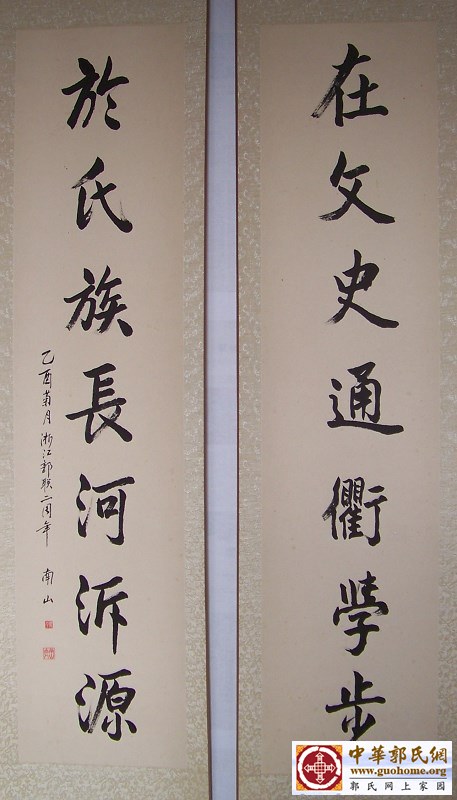 在文史通衢學步
於氏族長河泝源
乙酉菊月浙江郭联二周年 南山
中華郭氏網
www.guohome.org
郭氏网上家园